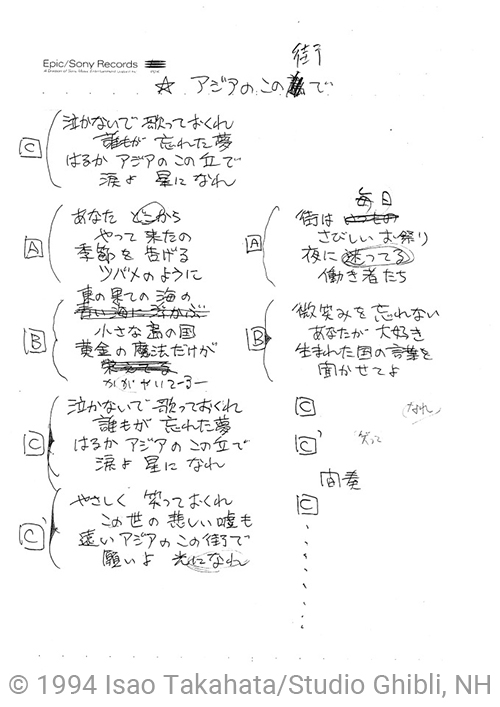 Epic/Sony Records
街
☆ アジアのこの で
C
泣かないで 歌っておくれ
誰もが 忘れた夢
はるか アジアのこの丘で
涙よ 星に なれ
A
あなた どこから
やって 来たの
季節を 告げる
ツバメのように
B
東の果ての 海の
青い海に浮かぶ
小さな 島の国
黄金の 魔法だけが
かがやいてーるー
C
泣かないで 歌っておくれ
誰もが 忘れた夢
はるか アジアのこの丘で
涙よ 星に なれ
C'
やさしく 笑っておくれ
この世の 悲しい嘘も
遠い アジアのこの街で
願いよ 光になれ
A
毎日
街は
さびしい お祭り
夜に 迷ってる
働き者たち
B
微笑みを 忘れない
あなたが 大好き
生まれた国の言葉を
聞かせてよ
C
なれ
C'
笑って
間奏
C
© 1994 Isao Takahata/Studio Ghibli, NH